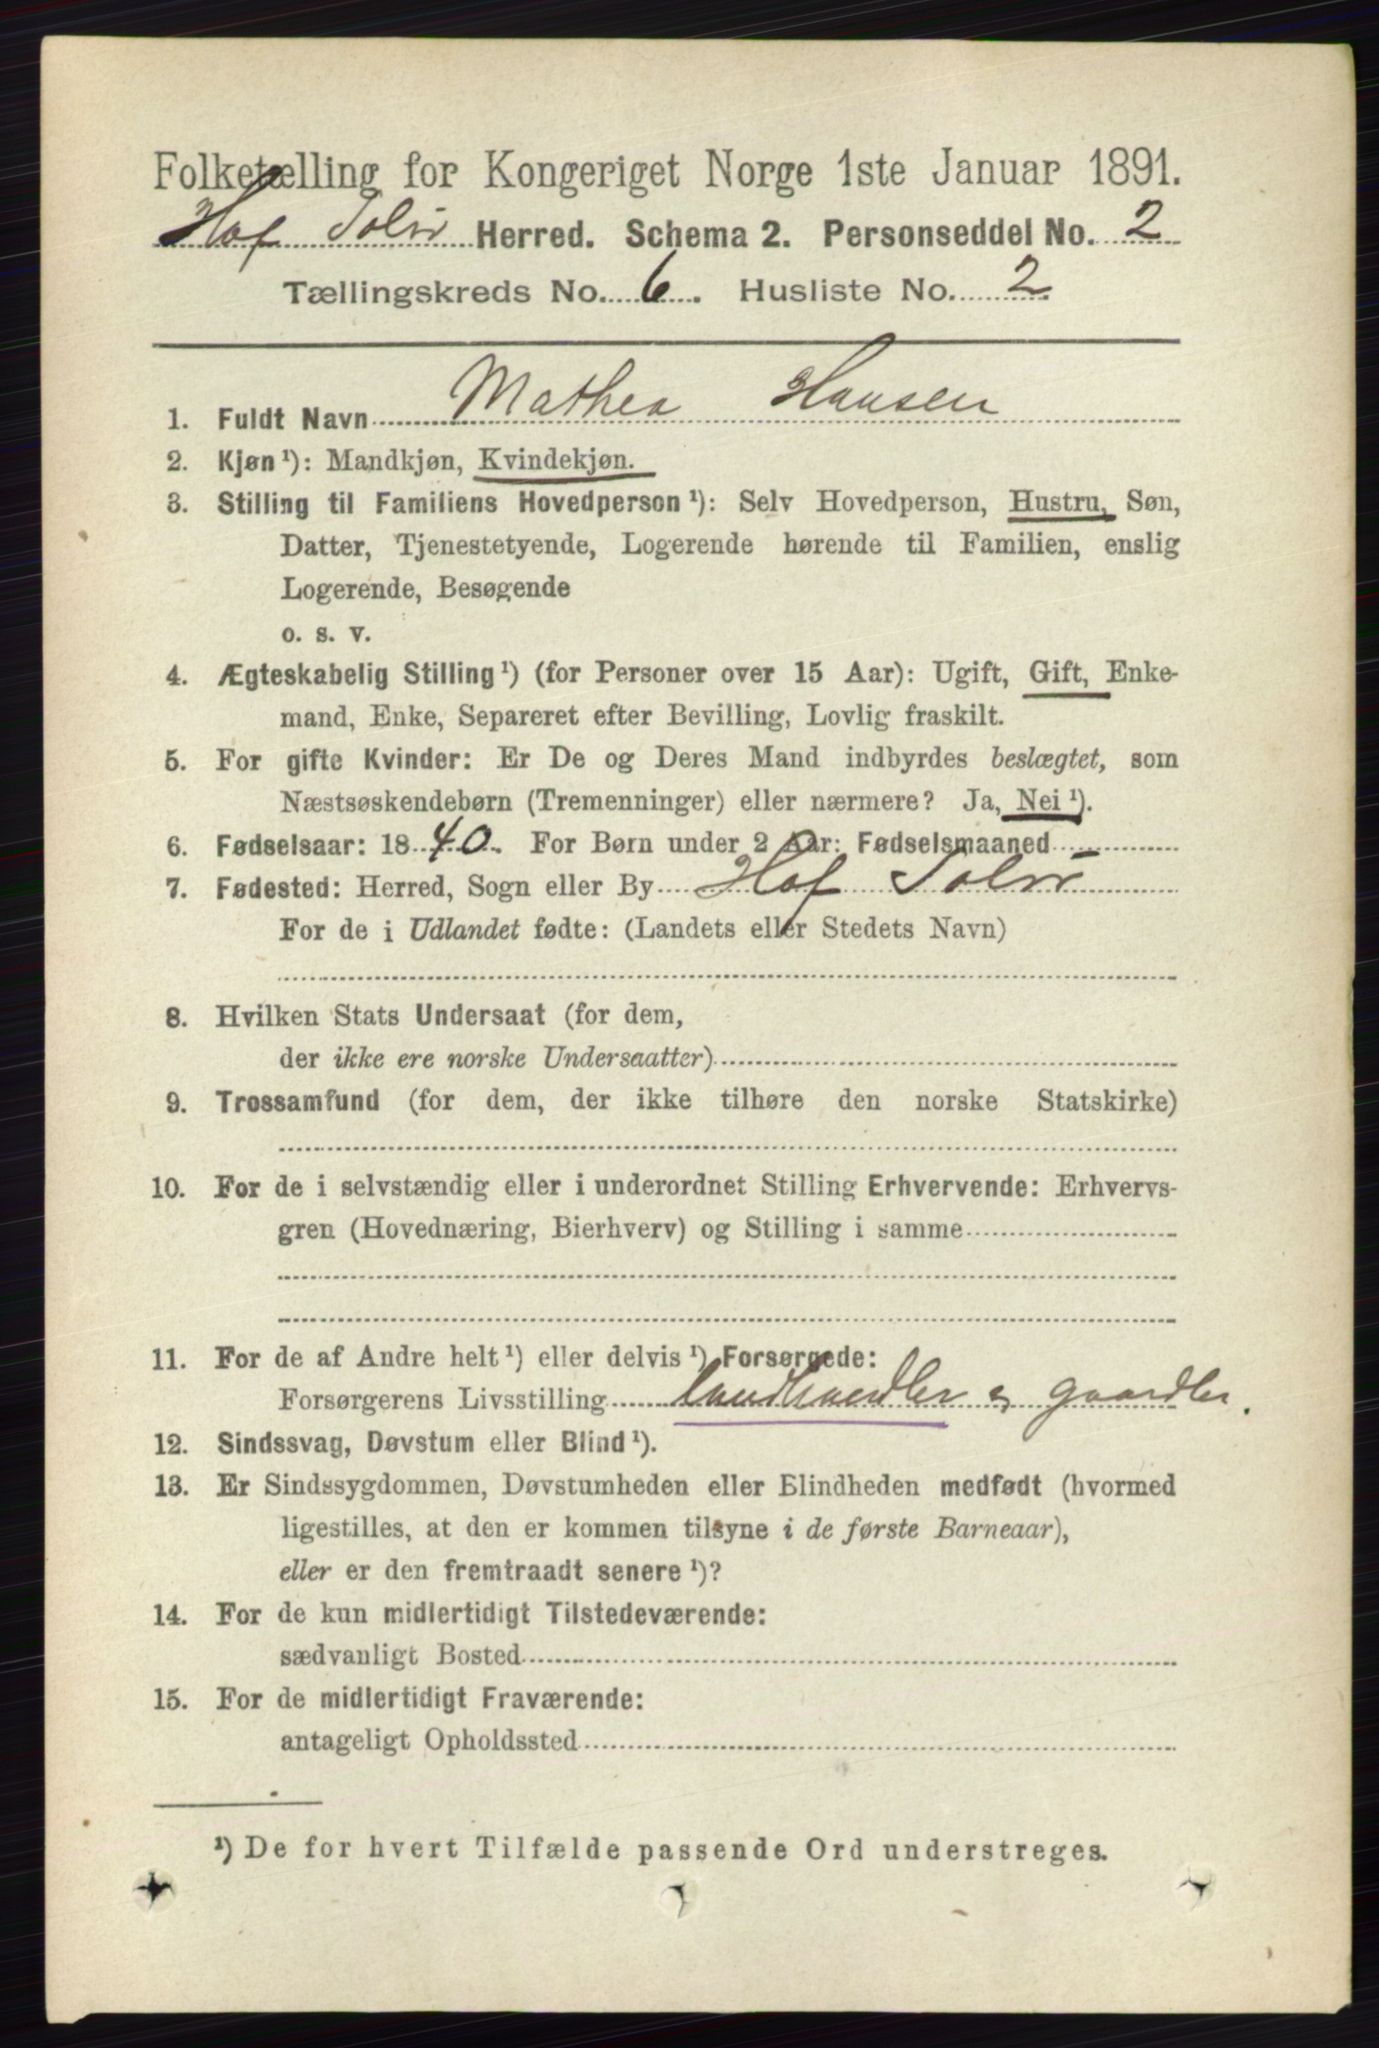 Folketælling for Kongeriget Norge 1ste Januar 1891.
Hof Solør Herred. Schema 2. Personseddel No. 2
Tællingskreds No. 6. Husliste No. 2.
1. Fuldt Navn Mathea Hansen
2. Kjøn ¹): Mandkjøn, Kvindekjøn.
3. Stilling til Familiens Hovedperson ¹): Selv Hovedperson, Hustru, Søn,
Datter, Tjenestetyende, Logerende hørende til Familien, enslig
Logerende, Besøgende
o. s. v.
4. Ægteskabelig Stilling ¹) (for Personer over 15 Aar): Ugift, Gift, Enke-
mand, Enke, Separeret efter Bevilling, Lovlig fraskilt.
5. For gifte Kvinder: Er De og Deres Mand indbyrdes beslægtet, som
Næstsøskendebørn (Tremenninger) eller nærmere? Ja, Nei ¹).
6. Fødselsaar: 1840. For Børn under 2 Aar: Fødselsmaaned
7. Fødested: Herred, Sogn eller By Hof Solør
For de i Udlandet fødte: (Landets eller Stedets Navn)
8. Hvilken Stats Undersaat (for dem,
der ikke ere norske Undersaatter)
9. Trossamfund (for dem, der ikke tilhøre den norske Statskirke)
10. For de i selvstændig eller i underordnet Stilling Erhvervende: Erhvervs-
gren (Hovednæring, Bierhverv) og Stilling i samme
11. For de af Andre helt ¹) eller delvis ¹) Forsørgede:
Forsørgerens Livsstilling landhandler og gaardbr.
12. Sindssvag, Døvstum eller Blind ¹).
13. Er Sindssygdommen, Døvstumheden eller Blindheden medfødt (hvormed
ligestilles, at den er kommen tilsyne i de første Barneaar),
eller er den fremtraadt senere ¹)?
14. For de kun midlertidigt Tilstedeværende:
sædvanligt Bosted
15. For de midlertidigt Fraværende:
antageligt Opholdssted
¹) De for hvert Tilfælde passende Ord understreges.